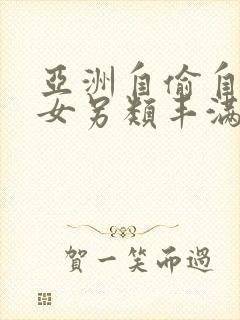 亞洲自偷自
女另類丰滿
賀一笑而過